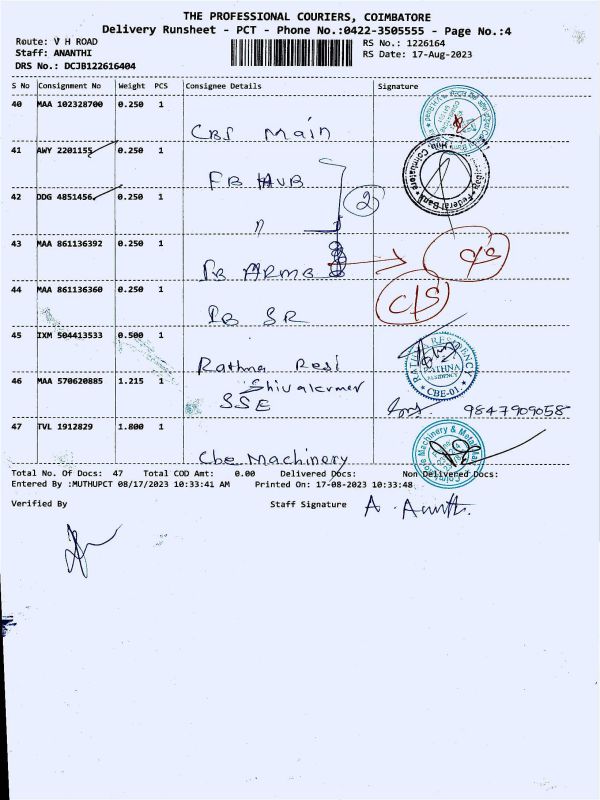 THE PROFESSIONAL COURIERS, COIMBATORE
Delivery Runsheet - PCT - Phone No.:0422-3505555 - Page No.:4
Route: V H ROAD
RS No.: 1226164
Staff: ANANTHI
RS Date: 17-Aug-2023
DRS No.: DCJB122616404
S No Consignment No Weight PCS Consignee Details Signature
40 MAA 102328700 0.250 1
CBS Main
41 AWY 2201155 0.250 1
FB HUB
Federal Bank
Coimbatore
42 DDG 4851456 0.250 1
2
"
43 MAA 861136392 0.250 1
IB ARMB
c/s
44 MAA 861136360 0.250 1
IB SR
c/s
45 IXM 504413533 0.500 1
Rathna Resi
RATHNA RESIDENCY
RATHNA
RESIDENCY
CBE-01.
46 MAA 570620885 1.215 1
SSE
9847909058
47 TVL 1912829 1.800 1
Cbe Machinery
Total No. Of Docs: 47 Total COD Amt: 0.00 Delivered Docs: Non Delivered Docs:
Entered By :MUTHUPCT 08/17/2023 10:33:41 AM Printed On: 17-08-2023 10:33:48
Verified By
Staff Signature A. Ananthi